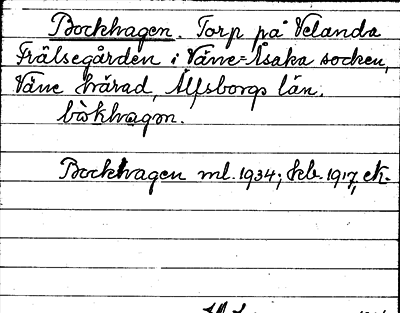 Bockhagen. Torp på Velanda
Frälsegården i Väne-Åsaka socken,
Väne härad, Älfsborgs län.
bòkhagən.
Bockhagen ml. 1934; skb. 1917, ek.